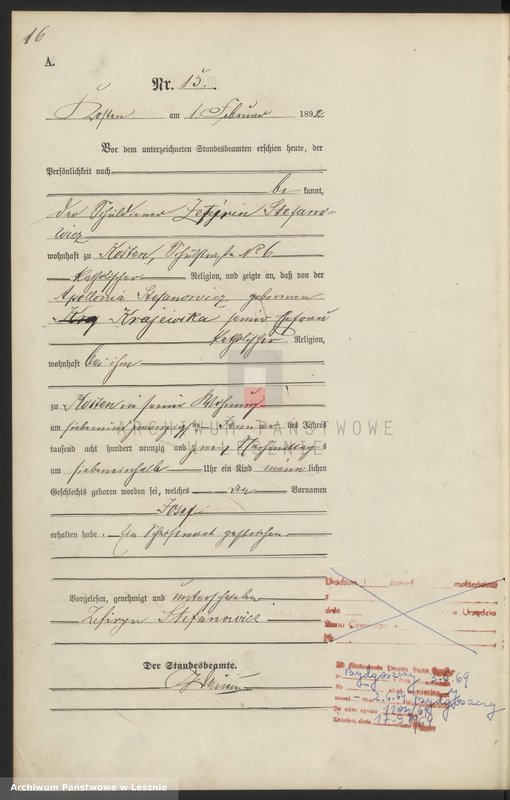 16
A.
Nr. 15.
Kosten am 1 Februar 1892
Vor dem unterzeichneten Standesbeamten erschien heute, der
Persönlichkeit nach
be kannt,
der Schuldiener Zefyrin Stefano-
wicz
wohnhaft zu Kosten, Schulstraße No 6
katholischer Religion, und zeigte an, daß von der
Apolonia Stefanowicz geborenen
Krajewska seiner Ehefrau
katholischer Religion,
wohnhaft bei ihm
zu Kosten in seiner Wohnung
am siebenundzwanzigsten Januar des Jahres
tausend acht hundert neunzig und zwei Nachmittags
um siebeneinhalb Uhr ein Kind männ lichen
Geschlechts geboren worden sei, welches den Vornamen
Josef
erhalten habe.
Vorgelesen, genehmigt und unterschrieben
Zefiryn Stefanowicz
Der Standesbeamte.
ARCHIWUM PAŃSTWOWE
W LESZNIE
małżeństwo
z
dnia w Urzędzie
Stanu Cywilnego w
Nr
Bydgoszczy 3.6.69
Nr
zmarł dnia 2.6.69 Bydgoszczy
Nr aktu zgonu 1102/69
Kościan, dnia 17-9 1969
Archiwum Państwowe w Lesznie